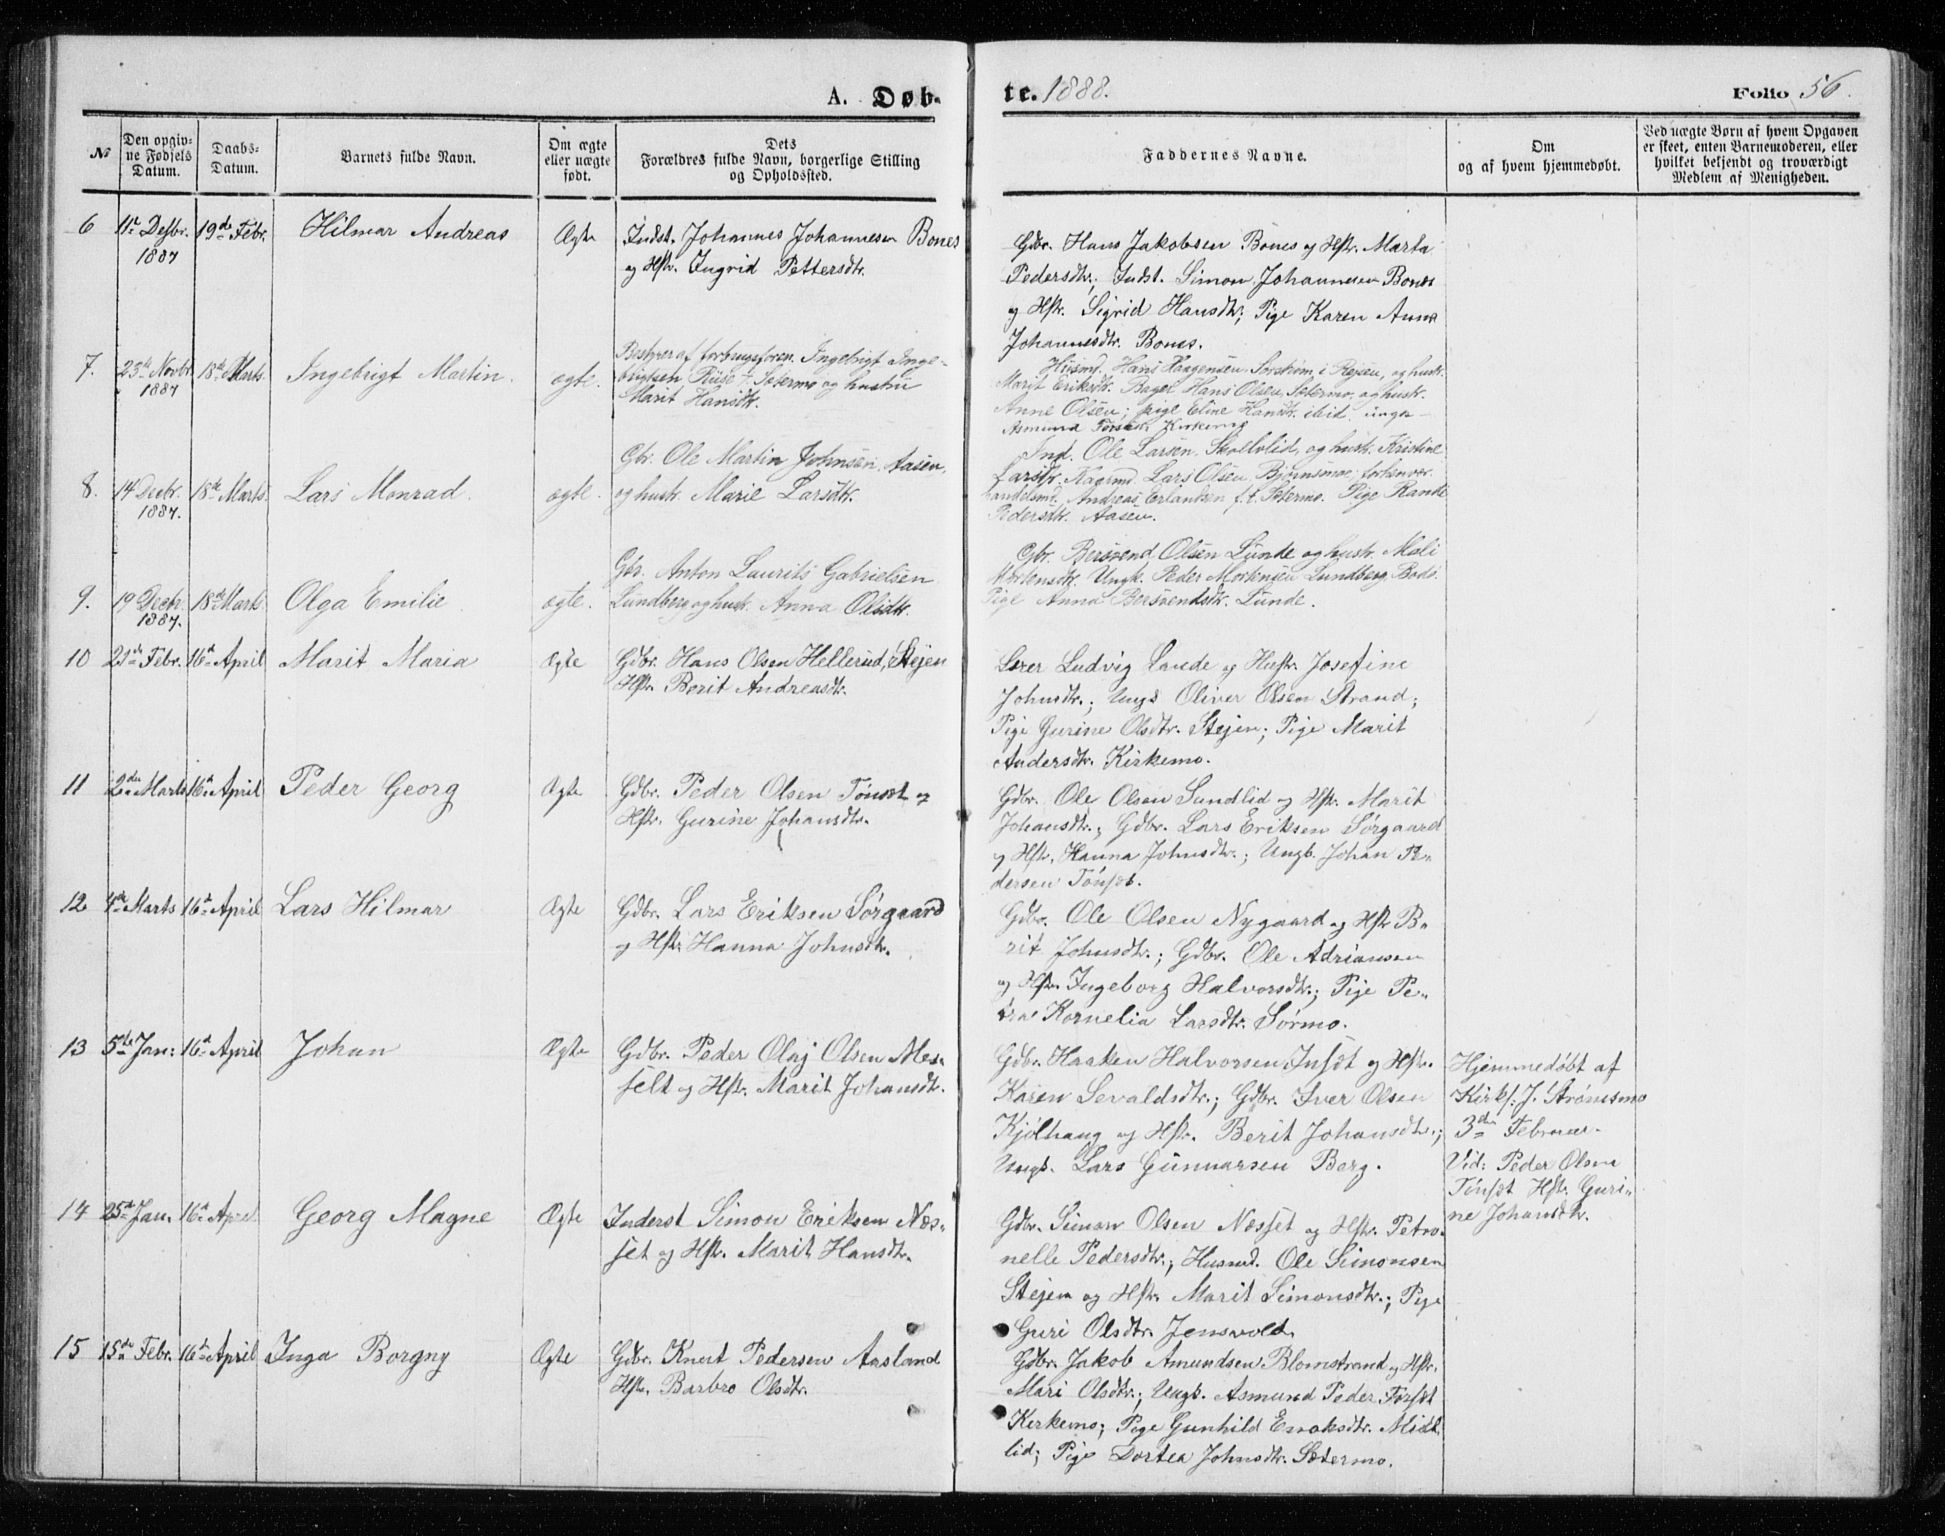 A. Døb-
te. 1888.
Folio 56.
№
Den opgiv-
ne Fødsels
Datum.
Daabs-
Datum.
Barnets fulde Navn.
Om ægte
eller uægte
født.
Dets
Forældres fulde Navn, borgerlige Stilling
og Opholdssted.
Faddernes Navne.
Om
og af hvem hjemmedøbt.
Ved uægte Børn af hvem Opgaven
er skeet, enten Barnemoderen, eller
hvilket bekjendt og troværdigt
Medlem af Menigheden.
6
11te Desbr.
1887
19de Febr.
Hilmar Andreas
Ægte
Indst. Johannes Johannesen Bones
og Hstr. Ingrid Pettersdtr.
Gdbr. Hans Jakobsen Bones og Hstr. Marta
Pedersdtr.; Indst. Simon Johannesen Bones
og Hstr. Sigrid Hansdtr; Pige Karen Anna
Johannesdtr. Bones.
7.
23de Novbr.
1887
18de Marts
Ingebrigt Martin.
ægte.
Bestyrer af forbrugsforen. Ingebrigt Inge-
brigtsen Riise f. t. Setermo og hustru
Marit Hansdtr.
Husmd. Hans Haagensen Sørstrøm, i Rejsen, og hustr.
Marit Eriksdtr. Bager Hans Olsen Setermo, og hustr.
Anne Olsen; pige Eline Hansdtr. ibid. ungk.
Asmund Kirkemo
8.
14 Decbr.
1887.
18de Marts
Lars Monrad.
ægte.
Gbr. Ole Martin Johnsen, Aasen,
og hustr. Marie Larsdtr.
Ind. Ole Larsen, Skoelvlid, og hustr. Kristine
Larsdtr. Lars Olsen Bjørnsmo;
handelsmd. Andreas Erlandsen f. t. Setermo. Pige Rande
Pedersdtr. Aasen.
9.
19 Decbr.
1887.
18de Marts
Olga Emilie.
ægte.
Gbr. Anton Laurits Gabrielsen
Lundberg og hustr. Anna Olsdtr.
Gbr. Bersvend Olsen Lunde og hustr. Mali
Mortensdtr. Ungk. Peder Mortensen Lundberg Bodø.
Pige Anna Bersvendsdtr. Lunde.
10
21de Febr.
16de April
Marit Maria
Ægte
Gdbr. Hans Olsen Hellerud, Stejen
Hstr. Berit Andreasdtr.
Lærer Ludvig Lande og Hustr. Josefine
Johnsdtr.; Ungk Oliver Olsen Strand;
Pige Gurine Olsdtr. Stejen; Pige Marit
Andersdtr. Kirkemo.
11
2den Marts
16de April
Peder Georg
Ægte
Gdbr. Peder Olsen Tønset og
Hstr. Gurine Johansdtr.
Gdbr. Ole Olsen Sundlid og Hstr. Marit
Johansdtr.; Gdbr. Lars Eriksen Sørgaard
og Hstr. Hanna Johnsdtr.; Ungk. Johan Pe-
dersen Tønset.
12
4de Marts
16de April
Lars Hilmar
Ægte
Gdbr. Lars Eriksen Sørgaard
og Hstr. Hanna Johnsdtr.
Gdbr. Ole Olsen Nygaard og Hstr Be-
rit Johnsdtr.; Gdbr. Ole Adriansen
og Hstr. Ingeborg Halvorsdtr.; Pige Pe-
tra Kornelia Larsdtr. Sørmo.
13
5te Jan:
16de April
Johan
Ægte
Gdbr. Peder Olaj Olsen Mes-
selt og Hstr. Marit Johansdtr.
Gdbr. Haaken Halvorsen Insæt og Hstr.
Karen Sevaldsdtr.; Gdbr. Iver Olsen
Kjølhaug og Hstr. Berit Johansdtr.;
Ungk. Lars Gunnarsen Berg.
Hjemmedøbt af
Kirks: J. Strømsmo
3de Februar.
Vid: Peder Olsen
Tønset Hstr. Guri-
ne Johansdtr.
14
25de Jan.
16de April
Georg Magne
Ægte
Inderst Simon Eriksen Næs-
set og Hstr. Marit Hansdtr.
Gdbr. Simon Olsen Næsset og Hstr. Petro-
nelle Pedersdtr.; Husmd. Ole Simonsen
Stejen og Hstr. Marit Simonsdtr.; Pige
Guri Olsdtr. Jensvold.
15
15de Febr.
16de April
Inga Borgny
Ægte
Gdbr. Knut Pedersen Aasland
Hstr. Barbro Olsdtr.
Gdbr. Jakob Amundsen Blomstrand og Hstr.
Mari Olsdtr.; Ungk. Asmund Peder Forset
Kirkemo; Pige Gunhild Enoksdtr. Midt-
lid; Pige Dortea Johnsdtr. Sætermo.